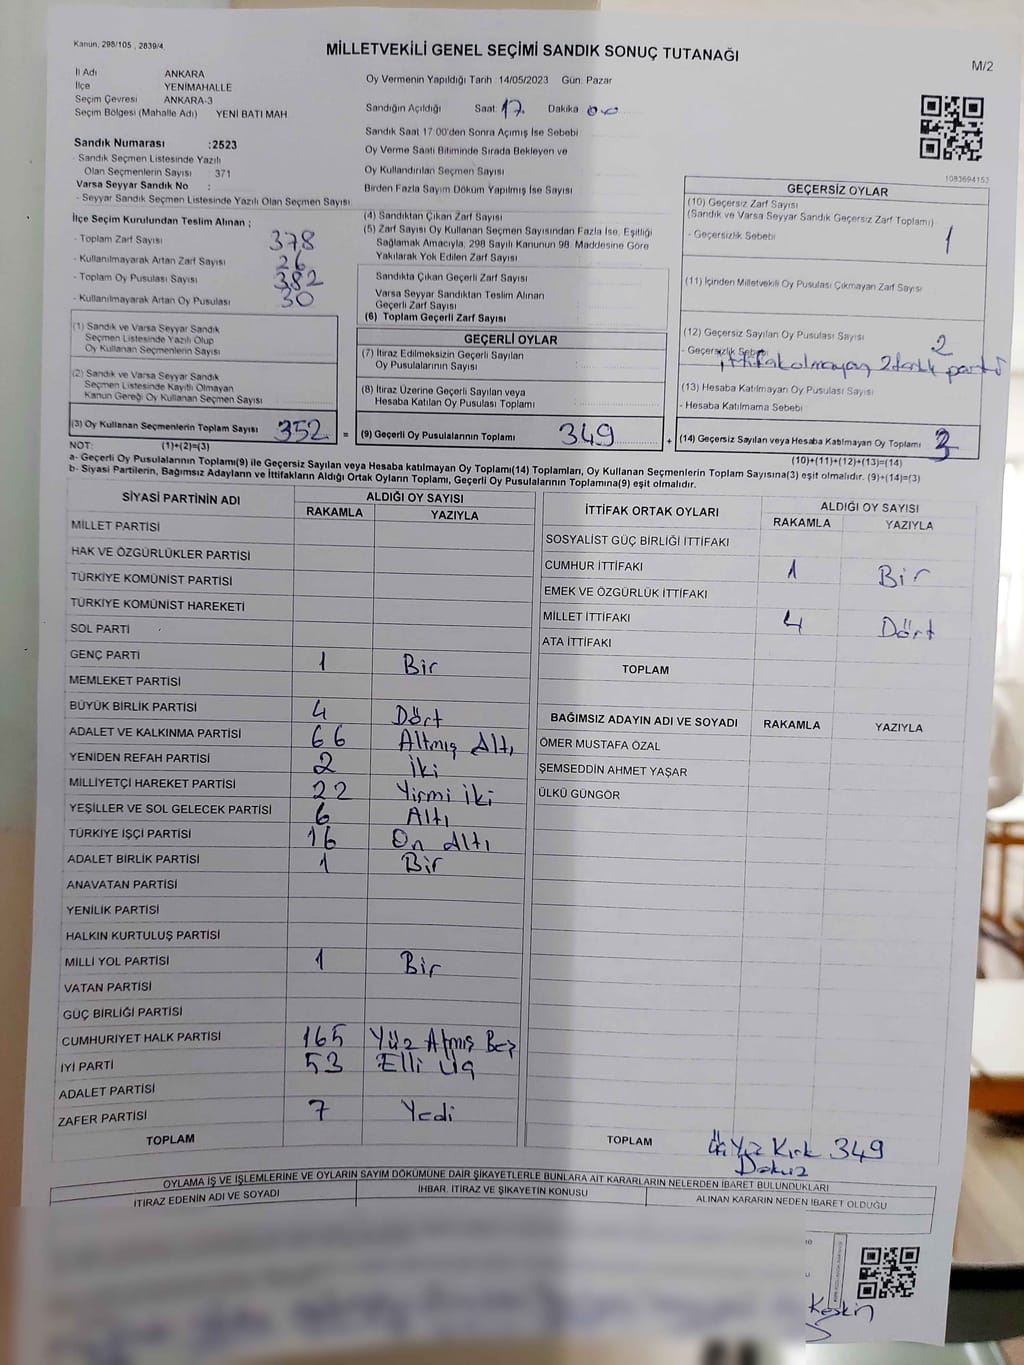 Kanun, 298/105 , 2839/4,
MİLLETVEKİLİ GENEL SEÇİMİ SANDIK SONUÇ TUTANAĞI
M/2
İl Adı ANKARA
İlçe YENİMAHALLE
Seçim Çevresi ANKARA-3
Seçim Bölgesi (Mahalle Adı) YENİ BATI MAH
Oy Vermenin Yapıldığı Tarih 14/05/2023 Gün: Pazar
Sandığın Açıldığı Saat: 17. Dakika 00
Sandık Saat 17:00'den Sonra Açımış İse Sebebi
Oy Verme Saati Bitiminde Sırada Bekleyen ve
Oy Kullandırılan Seçmen Sayısı
Birden Fazla Sayım Döküm Yapılmış İse Sayısı
Sandık Numarası :2523
- Sandık Seçmen Listesinde Yazılı
Olan Seçmenlerin Sayısı : 371
Varsa Seyyar Sandık No :
- Seyyar Sandık Seçmen Listesinde Yazılı Olan Seçmen Sayısı
İlçe Seçim Kurulundan Teslim Alınan ;
- Toplam Zarf Sayısı 378
- Kullanılmayarak Artan Zarf Sayısı 26
- Toplam Oy Pusulası Sayısı 382
- Kullanılmayarak Artan Oy Pusulası 30
(1) Sandık ve Varsa Seyyar Sandık
Seçmen Listesinde Yazılı Olup
Oy Kullanan Seçmenlerin Sayısı
(2) Sandık ve Varsa Seyyar Sandık
Seçmen Listesinde Kayıtlı Olmayan
Kanun Gereği Oy Kullanan Seçmen Sayısı
(3) Oy Kullanan Seçmenlerin Toplam Sayısı 352 =
(4) Sandıktan Çıkan Zarf Sayısı
(5) Zarf Sayısı Oy Kullanan Seçmen Sayısından Fazla İse, Eşitliği
Sağlamak Amacıyla, 298 Sayılı Kanunun 98. Maddesine Göre
Yakılarak Yok Edilen Zarf Sayısı
Sandıkta Çıkan Geçerli Zarf Sayısı
Varsa Seyyar Sandıktan Teslim Alınan
Geçerli Zarf Sayısı
(6) Toplam Geçerli Zarf Sayısı
GEÇERLİ OYLAR
(7) İtiraz Edilmeksizin Geçerli Sayılan
Oy Pusulalarının Sayısı
(8) İtiraz Üzerine Geçerli Sayılan veya
Hesaba Katılan Oy Pusulası Toplamı
(9) Geçerli Oy Pusulalarının Toplamı 349 +
1083694153
GEÇERSİZ OYLAR
(10) Geçersiz Zarf Sayısı
(Sandık ve Varsa Seyyar Sandık Geçersiz Zarf Toplamı)
- Geçersizlik Sebebi 1
(11) İçinden Milletvekili Oy Pusulası Çıkmayan Zarf Sayısı
(12) Geçersiz Sayılan Oy Pusulası Sayısı 2
- Geçersizlik Sebebi
ittifak olmayan 2 farklı parti
(13) Hesaba Katılmayan Oy Pusulası Sayısı
- Hesaba Katılmama Sebebi
(14) Geçersiz Sayılan veya Hesaba Katılmayan Oy Toplamı 3
NOT: (1)+(2)=(3)
(10)+(11)+(12)+(13)=(14)
a- Geçerli Oy Pusulalarının Toplamı(9) ile Geçersiz Sayılan veya Hesaba katılmayan Oy Toplamı(14) Toplamları, Oy Kullanan Seçmenlerin Toplam Sayısına(3) eşit olmalıdır. (9)+(14)=(3)
b- Siyasi Partilerin, Bağımsız Adayların ve İttifakların Aldığı Ortak Oyların Toplamı, Geçerli Oy Pusulalarının Toplamına(9) eşit olmalıdır.
SİYASİ PARTİNİN ADI ALDIĞI OY SAYISI
RAKAMLA YAZIYLA
MİLLET PARTİSİ
HAK VE ÖZGÜRLÜKLER PARTİSİ
TÜRKİYE KOMÜNİST PARTİSİ
TÜRKİYE KOMÜNİST HAREKETİ
SOL PARTİ
GENÇ PARTİ 1 Bir
MEMLEKET PARTİSİ
BÜYÜK BİRLİK PARTİSİ 4 Dört
ADALET VE KALKINMA PARTİSİ 66 Altmış Altı
YENİDEN REFAH PARTİSİ 2 İki
MİLLİYETÇİ HAREKET PARTİSİ 22 Yirmi iki
YEŞİLLER VE SOL GELECEK PARTİSİ 6 Altı
TÜRKİYE İŞÇİ PARTİSİ 16 On Altı
ADALET BİRLİK PARTİSİ 1 Bir
ANAVATAN PARTİSİ
YENİLİK PARTİSİ
HALKIN KURTULUŞ PARTİSİ
MİLLİ YOL PARTİSİ 1 Bir
VATAN PARTİSİ
GÜÇ BİRLİĞİ PARTİSİ
CUMHURİYET HALK PARTİSİ 165 Yüz Atmış Beş
İYİ PARTİ 53 Elli Üç
ADALET PARTİSİ
ZAFER PARTİSİ 7 Yedi
TOPLAM
İTTİFAK ORTAK OYLARI ALDIĞI OY SAYISI
RAKAMLA YAZIYLA
SOSYALİST GÜÇ BİRLİĞİ İTTİFAKI
CUMHUR İTTİFAKI 1 Bir
EMEK VE ÖZGÜRLÜK İTTİFAKI
MİLLET İTTİFAKI 4 Dört
ATA İTTİFAKI
TOPLAM
BAĞIMSIZ ADAYIN ADI VE SOYADI RAKAMLA YAZIYLA
ÖMER MUSTAFA ÖZAL
ŞEMSEDDİN AHMET YAŞAR
ÜLKÜ GÜNGÖR
TOPLAM Üç Yüz Kırk 349
Dokuz
OYLAMA İŞ VE İŞLEMLERİNE VE OYLARIN SAYIM DÖKÜMÜNE DAİR ŞİKAYETLERLE BUNLARA AİT KARARLARIN NELERDEN İBARET BULUNDUKLARI
İTİRAZ EDENİN ADI VE SOYADI İHBAR, İTİRAZ VE ŞİKAYETİN KONUSU ALINAN KARARIN NEDEN İBARET OLDUĞU
Keskin